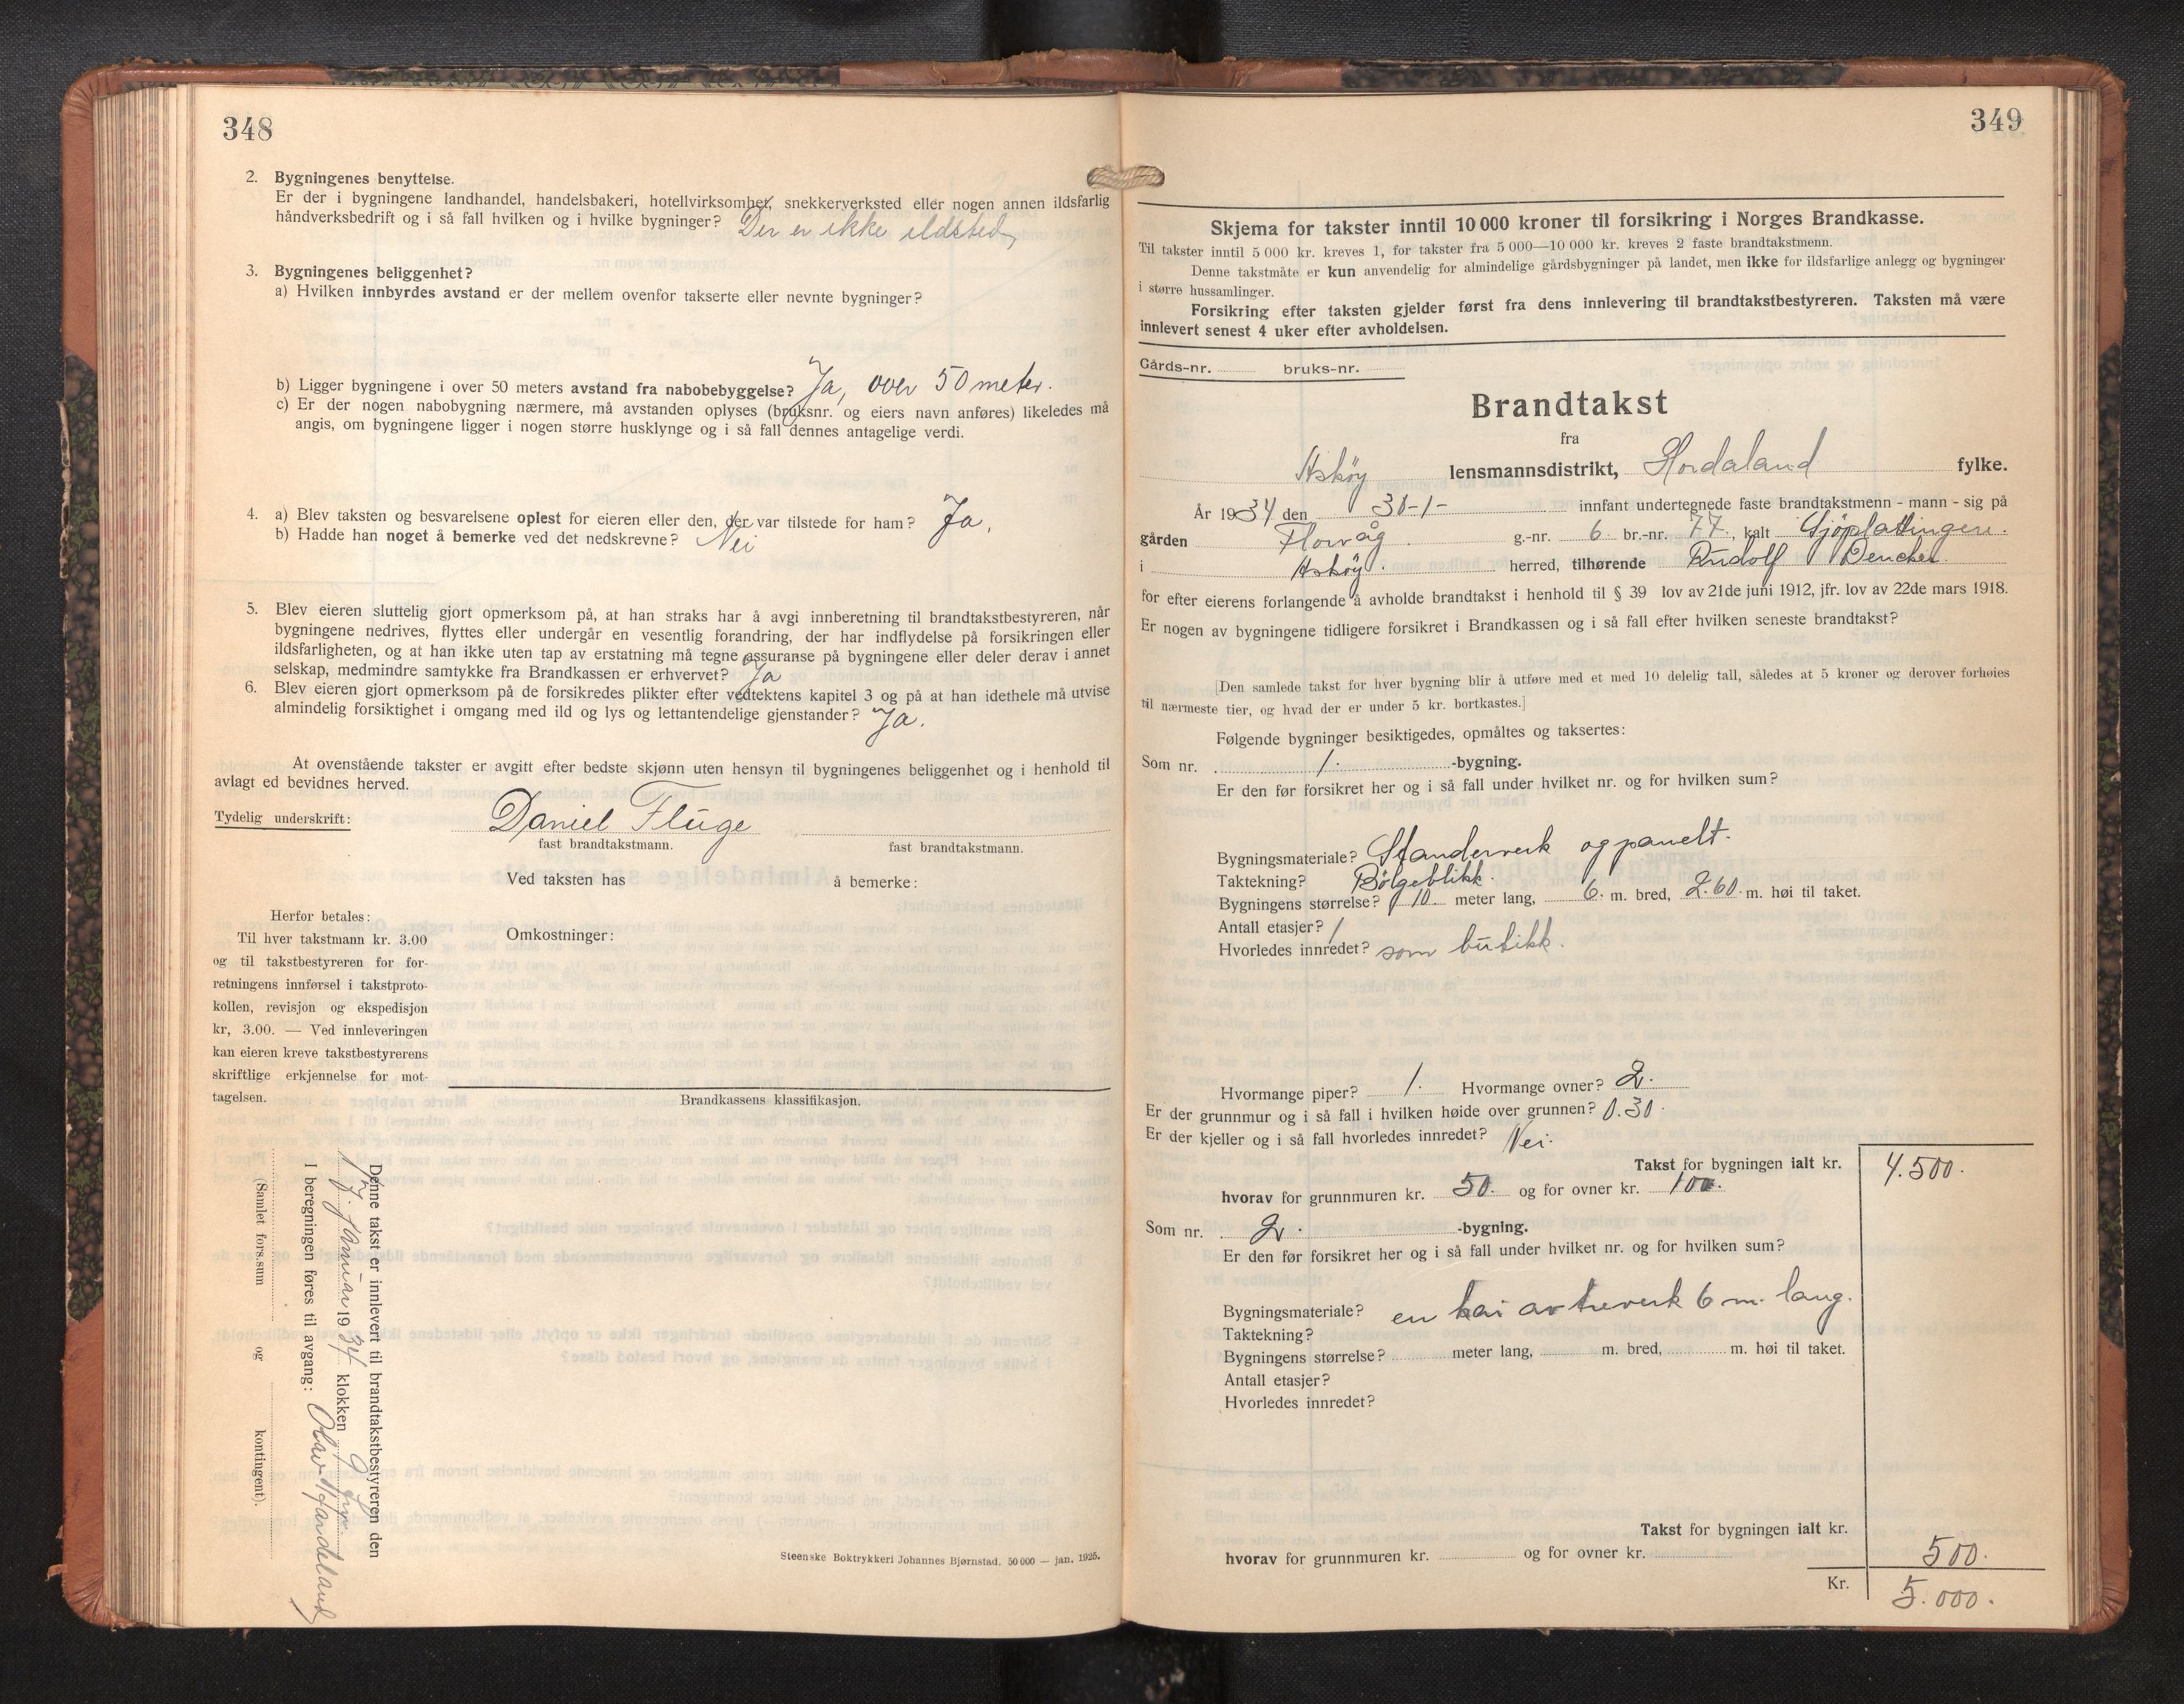 348
2. Bygningenes benyttelse.
Er der i bygningene landhandel, handelsbakeri, hotellvirksomhet, snekkerverksted eller nogen annen ildsfarlig
håndverksbedrift og i så fall hvilken og i hvilke bygninger? Der er ikke ildsted
3. Bygningenes beliggenhet?
a) Hvilken innbyrdes avstand er der mellem ovenfor takserte eller nevnte bygninger?
b) Ligger bygningene i over 50 meters avstand fra nabobebyggelse? Ja, over 50 meter.
c) Er der nogen nabobygning nærmere, må avstanden oplyses (bruksnr. og eiers navn anføres) likeledes må
angis, om bygningene ligger i nogen større husklynge og i så fall dennes antagelige verdi.
4. a) Blev taksten og besvarelsene oplest for eieren eller den, der var tilstede for ham? Ja,
b) Hadde han noget å bemerke ved det nedskrevne? Nei
5. Blev eieren sluttelig gjort opmerksom på, at han straks har å avgi innberetning til brandtakstbestyreren, når
bygningene nedrives, flyttes eller undergår en vesentlig forandring, der har indflydelse på forsikringen eller
ildsfarligheten, og at han ikke uten tap av erstatning må tegne assuranse på bygningene eller deler derav i annet
selskap, medmindre samtykke fra Brandkassen er erhvervet? Ja
6. Blev eieren gjort opmerksom på de forsikredes plikter efter vedtektens kapitel 3 og på at han idethele må utvise
almindelig forsiktighet i omgang med ild og lys og lettantendelige gjenstander? Ja.
At ovenstående takster er avgitt efter bedste skjønn uten hensyn til bygningenes beliggenhet og i henhold til
avlagt ed bevidnes herved.
Tydelig underskrift: Daniel Fluge
fast brandtakstmann. fast brandtakstmann.
Ved taksten has å bemerke:
Herfor betales:
Til hver takstmann kr. 3.00
og til takstbestyreren for for-
retningens innførsel i takstproto-
kollen, revisjon og ekspedisjon
kr, 3.00. — Ved innleveringen
kan eieren kreve takstbestyrerens
skriftlige erkjennelse for mot-
tagelsen.
Omkostninger:
Brandkassens klassifikasjon.
Denne takst er innlevert til brandtakstbestyreren den
17 Januar 1934 klokken 9 fm.
I beregningen føres til avgang: Olav
(Samlet fors.sum og kontingent).
Steenske Boktrykkeri Johannes Bjørnstad. 50 000 — jan. 1925.
349
Skjema for takster inntil 10 000 kroner til forsikring i Norges Brandkasse.
Til takster inntil 5 000 kr. kreves 1, for takster fra 5 000—10 000 kr. kreves 2 faste brandtakstmenn.
Denne takstmåte er kun anvendelig for almindelige gårdsbygninger på landet, men ikke for ildsfarlige anlegg og bygninger
i større hussamlinger.
Forsikring efter taksten gjelder først fra dens innlevering til brandtakstbestyreren. Taksten må være
innlevert senest 4 uker efter avholdelsen.
Gårds-nr. bruks-nr.
Brandtakst
fra
Askøy lensmannsdistrikt, Hordaland fylke.
År 1934 den 30-1- innfant undertegnede faste brandtakstmenn - mann - sig på
gården Florvåg. g.-nr. 6 br.-nr. 77, kalt Sjøplattingen.
i Askøy. herred, tilhørende Rudolf Dencker.
for efter eierens forlangende å avholde brandtakst i henhold til § 39 lov av 21de juni 1912, jfr. lov av 22de mars 1918.
Er nogen av bygningene tidligere forsikret i Brandkassen og i så fall efter hvilken seneste brandtakst?
[Den samlede takst for hver bygning blir å utføre med et med 10 delelig tall, således at 5 kroner og derover forhøies
til nærmeste tier, og hvad der er under 5 kr. bortkastes.]
Følgende bygninger besiktigedes, opmåltes og taksertes:
Som nr. 1. -bygning.
Er den før forsikret her og i så fall under hvilket nr. og for hvilken sum?
Bygningsmateriale? Standerverk og panelt.
Taktekning? Bølgeblikk.
Bygningens størrelse? 10 meter lang, 6. m. bred, 2.60. m. høi til taket.
Antall etasjer? 1
Hvorledes innredet? som butikk.
Hvormange piper? 1. Hvormange ovner? 2.
Er der grunnmur og i så fall i hvilken høide over grunnen? 0.30.
Er der kjeller og i så fall hvorledes innredet? Nei.
Takst for bygningen ialt kr. 4.500.
hvorav for grunnmuren kr. 50. og for ovner kr. 100.
Som nr. 2. -bygning.
Er den før forsikret her og i så fall under hvilket nr. og for hvilken sum?
Bygningsmateriale? en kai av treverk 6 m. lang.
Taktekning?
Bygningens størrelse? meter lang, m. bred, m. høi til taket.
Antall etasjer?
Hvorledes innredet?
Takst for bygningen ialt kr. 500.
hvorav for grunnmuren kr. og for ovner kr.
Kr. 5.000.